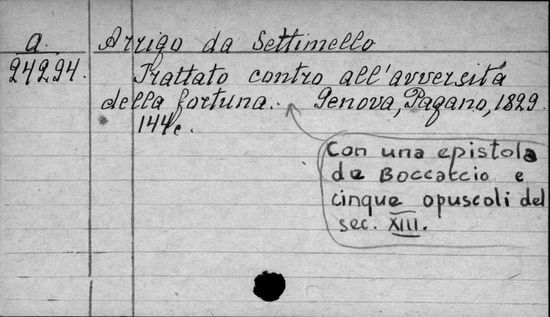 a. Arrigo da Settimello
24294. Trattato contro all'avversità
della fortuna. Genova, Pagano, 1829.
144c.
Con una epistola
de Boccaccio e
cinque opuscoli del
sec. XIII.